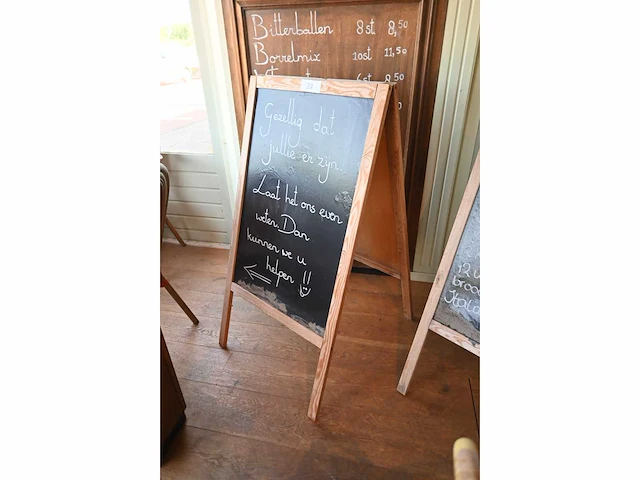 Bitterballen 8st 8,50
Borrelmix 10st 11,50
6st 8,50
Gezellig dat
jullie er zijn.
Laat het ons even
weten. Dan
kunnen we u
helpen !!